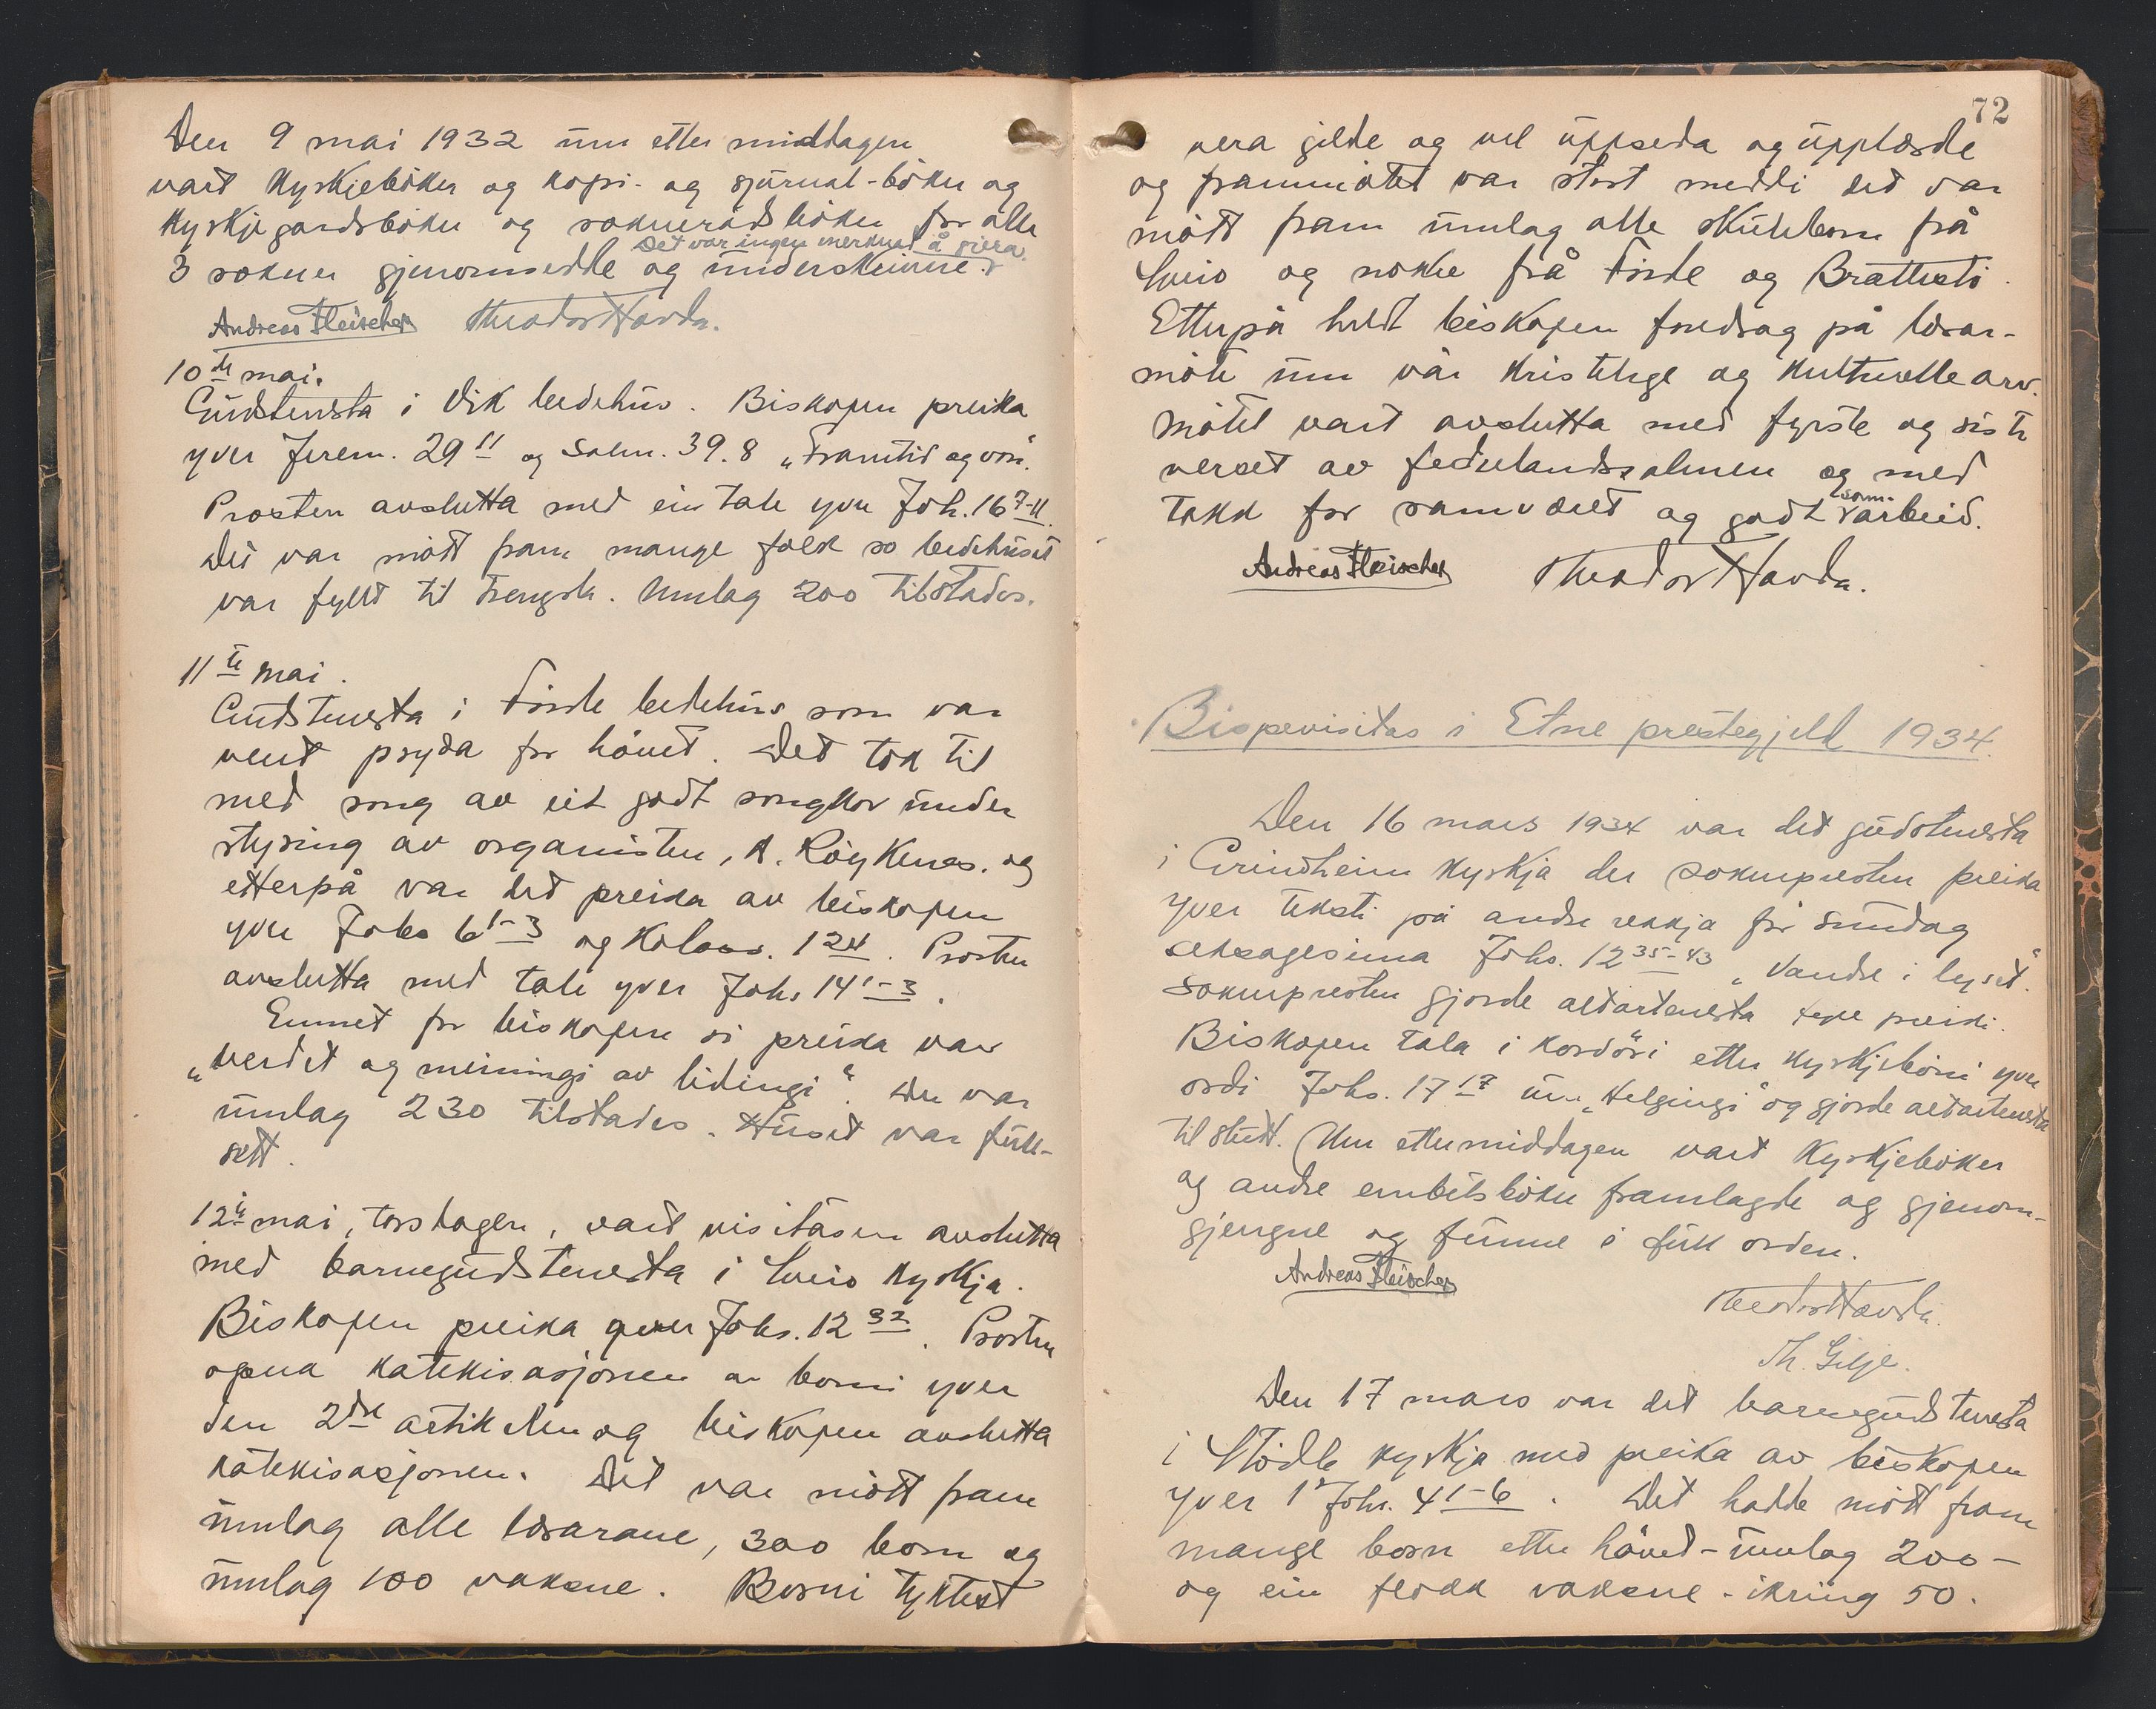 Den 9 mai 1932 um etter middagen
vart kyrkjebøker og kopi- og sjurnal-bøker og
kyrkjegardsbøker og sokneråds bøker for alle
Det var ingen merknad å gjera.
3 sokner gjenomsedde og underskrivne.
Andreas Fleischer Theodor Havda.
10de mai.
Gudstenesta i Vik bedehus. Biskopen preika
yver Jerem. 29 11 og Salm. 39.8 „Framtid og von".
Prosten avslutta med ein tale yver Joh. 16 7-11.
Det var mött fram mange folk so bedehuset
var fyllt til trengsla. Umlag 200 tilstades.
11te mai.
Gudstenesta i Förde bedehus som var
vent pryda for høvet. Det tok til
med song av eit godt songkor under
styring av organisten, K. Röykenes. og
etterpå var det preika av biskopen
yver Johs 6 1-3 og Koloss. 1 24. Prosten
avslutta med tale yver Johs 14 1-3.
Emnet for biskopen si preika var
„verdet og meiningi av lidingi". Der var
umlag 230 tilstades. Huset var full-
sett.
12te mai, torsdagen, vart visitasen avslutta
med barnegudstenesta i Sveio kyrkja.
Biskopen preika yver Johs. 12 32. Prosten
opna katekisasjonen av borni yver
den 2dre artikelen og biskopen avslutta
katekisasjonen. Det var mött fram
umlag alle lærarane, 300 born og
umlag 100 vaksne. Borni tyktest
72
vera gilde og vel uppseda og upplærde
og frammötet var stort medi det var
mött fram umlag alle skuleborn frå
Sveio og nokre frå Förde og Brattestö.
Etterpå heldt biskopen foredrag på lærar-
möte um vår kristelege og kulturelle arv.
Mötet vart avslutta med fyrste og siste
verset av federlandssalmen og med
takk for samværet og godt samarbeid.
Andreas Fleischer Theodor Havda.
Bispevisitas i Etne prestegjeld 1934.
Den 16 mars 1934 var det gudstenesta
i Grindheim kyrkja der soknepresten preika
yver teksti på andre rekkja for sundag
seksagesima Johs. 12 35-43 „Vandre i lyset".
Soknepresten gjorde altartenesta fyre preiki.
Biskopen tala i kordöri etter kyrkjeböni yver
ordi Johs. 17 17 um „Helgingi" og gjorde altartenesta
til slutt. Um ettermiddagen vart kyrkjebøker
og andre embetsbøker framlagde og gjenom-
gjengne og funne i full orden.
Andreas Fleischer
Theodor Havda.
Th. Gilje.
Den 17 mars var det barnegudstenesta
i Stödle kyrkja med preika av biskopen
yver 1 Joh. 4 1-6. Det hadde mött fram
mange born etter høvet - umlag 200 -
og ein flokk vaksne - ikring 50.